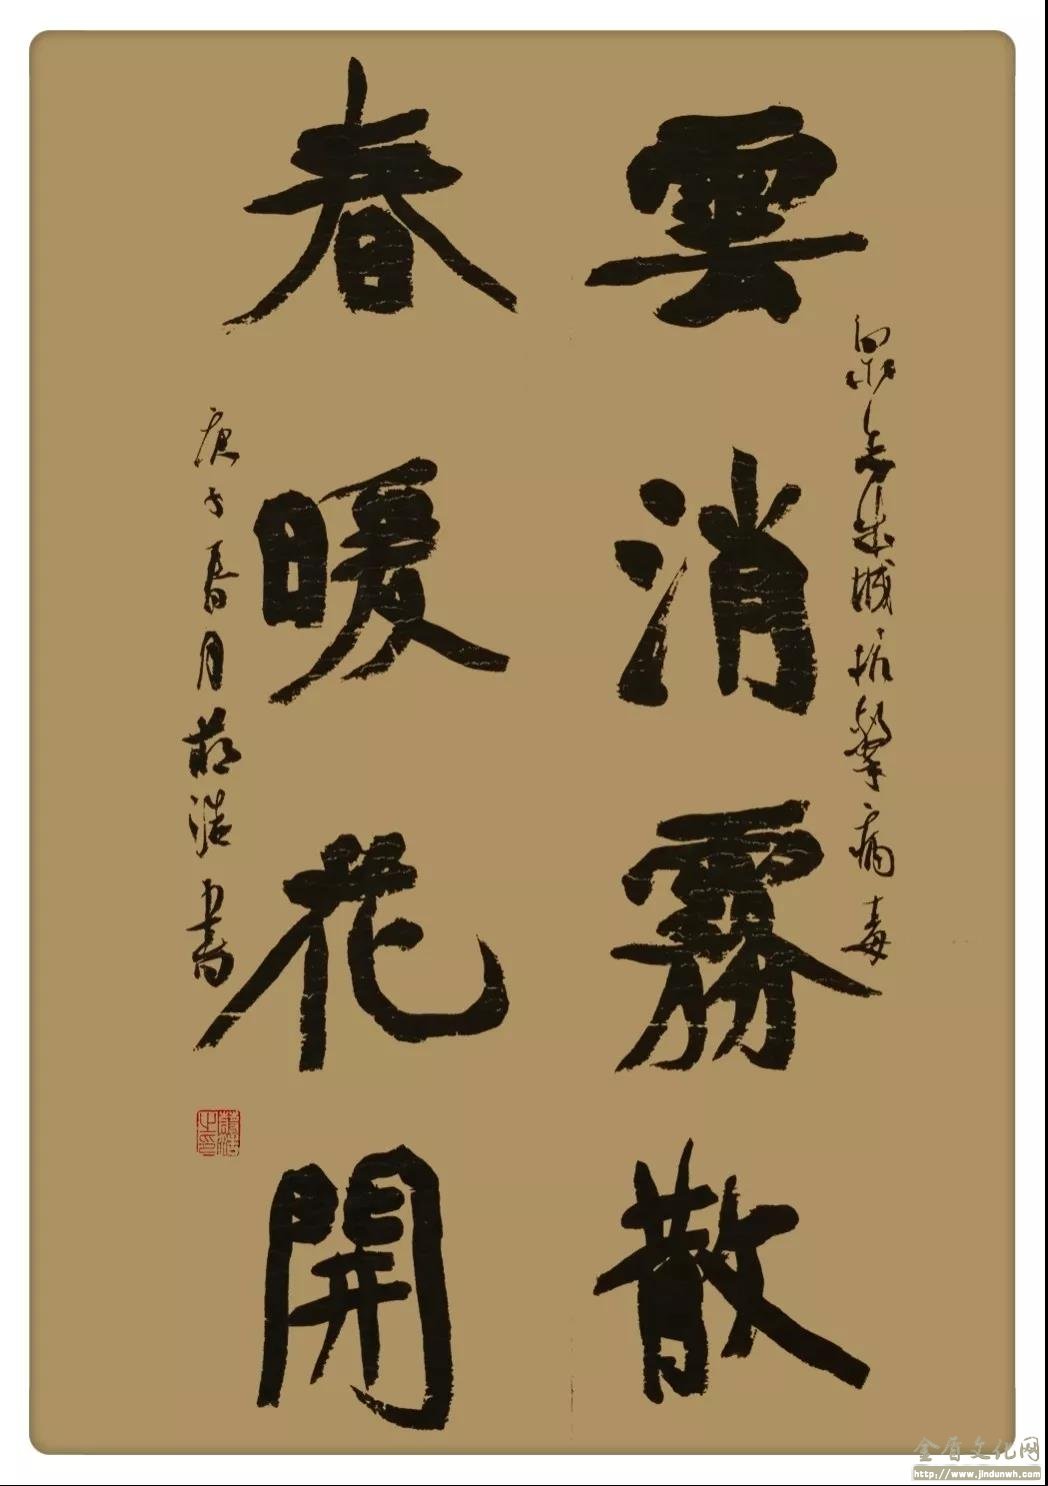 眾志成城抗擊病毒
雲消霧散
春暖花開
庚子春月蕭浩書
蕭浩之印
金盾文化网
http://www.jindunwh.com